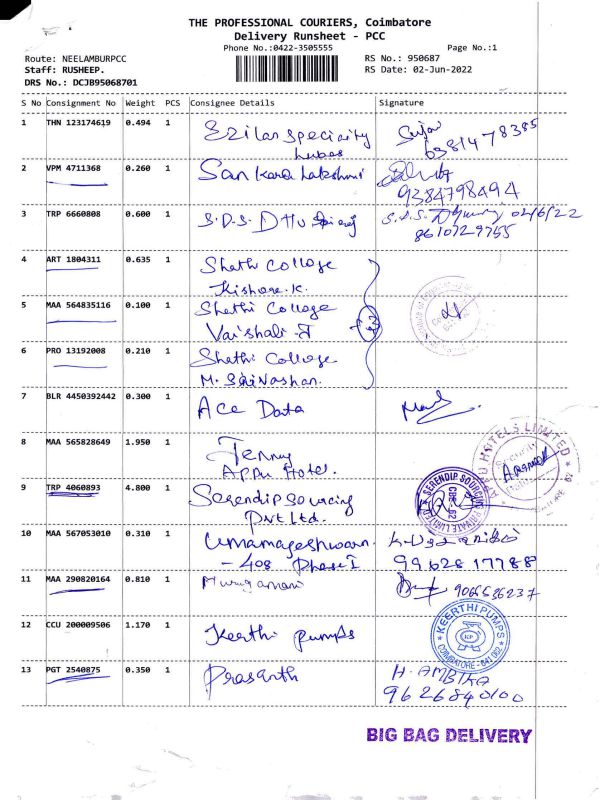 THE PROFESSIONAL COURIERS, Coimbatore
Delivery Runsheet - PCC
Phone No.:0422-3505555 Page No.:1
Route: NEELAMBURPCC RS No.: 950687
Staff: RUSHEEP. RS Date: 02-Jun-2022
DRS No.: DCJB95068701
S No Consignment No Weight PCS Consignee Details Signature
1 THN 123174619 0.494 1 Ezilan speciality
2 VPM 4711368 0.260 1 Sankara Lakshmi
9384798494
3 TRP 6660808 0.600 1 S.D.S. 02/6/22
8610729755
4 ART 1804311 0.635 1 Shathi College
Kishore.K.
5 MAA 564835116 0.100 1 Shathi College
Vaishali
6 PRO 13192008 0.210 1 Shathi College
M.
7 BLR 4450392442 0.300 1 Ace Data
8 MAA 565828649 1.950 1 Jenny
APPU Hotel.
APPU HOTELS LIMITED
9 TRP 4060893 4.800 1 Serendip sourcing
Pvt Ltd.
SERENDIP SOURCING PRIVATE LIMITED
CBE-62
10 MAA 567053010 0.310 1 Umamageshwaran.
- 408 Phase I 99628 17788
11 MAA 290820164 0.810 1
12 CCU 200009506 1.170 1 Keerthi pumps
KEERTHI PUMPS
KP
COIMBATORE - 641 062
13 PGT 2540875 0.350 1 Prasanth H. AMBIKA
9626840100
BIG BAG DELIVERY